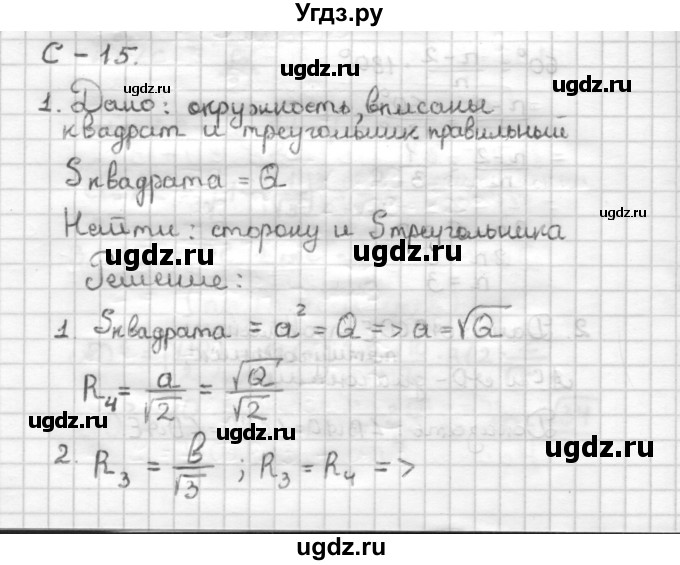 Угдз.ру
С - 15.
ugdz.ru ugdz.ru
ugdz.ru
1. Дано: окружность, вписаны
квадрат и треугольник правильный
ugdz.ru ugdz.ru
Sквадрата = Q
ugdz.ru
Найти: сторону и Sтреугольника
ugdz.ru ugdz.ru
Решение:
1. Sквадрата = a² = Q => a = √Q
ugdz.ru ugdz.ru
R₄ = a/√2 = √Q/√2
ugdz.ru ugdz.ru
2. R₃ = b/√3 ; R₃ = R₄ =>
ugdz.ru
ugdz.ru